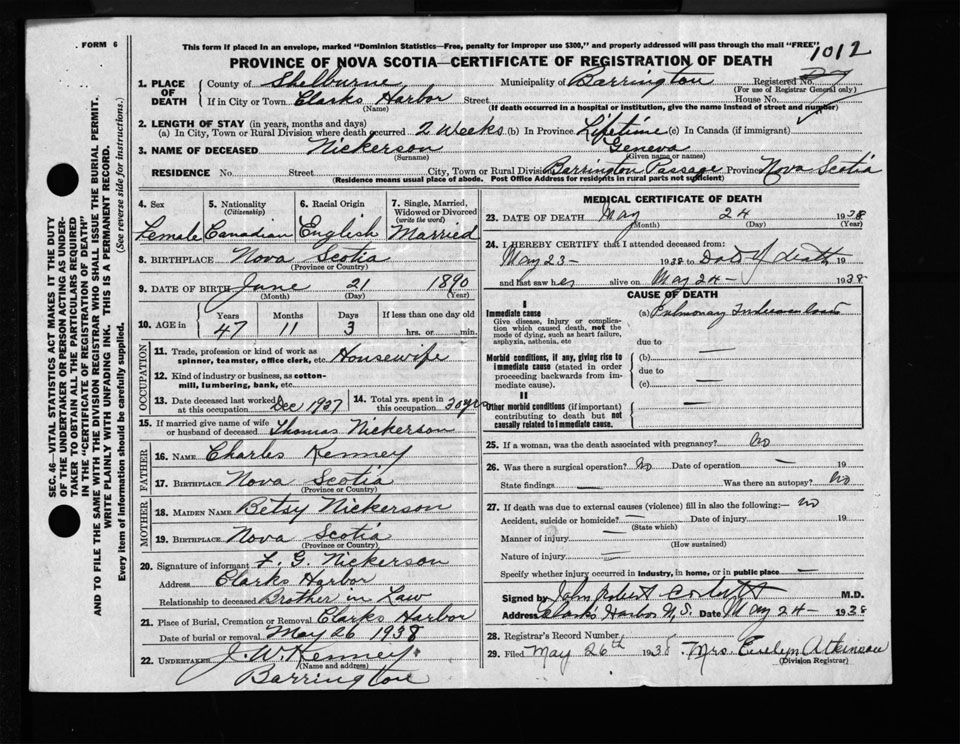 FORM 6
This form if placed in an envelope, marked "Dominion Statistics—Free, penalty for improper use $300," and properly addressed will pass through the mail "FREE"
1012
PROVINCE OF NOVA SCOTIA—CERTIFICATE OF REGISTRATION OF DEATH
1. PLACE OF DEATH
County of Shelburne Municipality of Barrington Registered No.
(For use of Registrar General only)
If in City or Town Clarks Harbor Street House No.
(Name) (If death occurred in a hospital or institution, give the name instead of street and number)
2. LENGTH OF STAY (in years, months and days)
(a) In City, Town or Rural Division where death occurred 2 Weeks (b) In Province Lifetime (c) In Canada (if immigrant)
3. NAME OF DECEASED Nickerson Geneva
(Surname) (Given name or names)
RESIDENCE No. Street City, Town or Rural Division Barrington Passage Province Nova Scotia
(Residence means usual place of abode. Post Office Address for residents in rural parts not sufficient)
4. Sex 5. Nationality (Citizenship) 6. Racial Origin 7. Single, Married, Widowed or Divorced (write the word)
Female Canadian English Married
8. BIRTHPLACE Nova Scotia
(Province or Country)
9. DATE OF BIRTH June 21 1890
(Month) (Day) (Year)
10. AGE in Years Months Days If less than one day old
47 11 3 hrs. or min.
OCCUPATION
11. Trade, profession or kind of work as spinner, teamster, office clerk, etc. Housewife
12. Kind of industry or business, as cotton-mill, lumbering, bank, etc.
13. Date deceased last worked at this occupation Dec 1937 14. Total yrs. spent in this occupation 30 yrs
15. If married give name of wife or husband of deceased Thomas Nickerson
FATHER
16. Name Charles Kenney
17. Birthplace Nova Scotia
(Province or Country)
MOTHER
18. Maiden Name Betsy Nickerson
19. Birthplace Nova Scotia
(Province or Country)
20. Signature of informant F. G. Nickerson
Address Clarks Harbor
Relationship to deceased Brother in Law
21. Place of Burial, Cremation or Removal Clarks Harbor
Date of burial or removal May 26 1938
22. UNDERTAKER J. W. Kenney
(Name and address)
Barrington
MEDICAL CERTIFICATE OF DEATH
23. DATE OF DEATH May 24 1938
(Month) (Day) (Year)
24. I HEREBY CERTIFY that I attended deceased from:
May 23 - 1938 to Date of death 19
and last saw her alive on May 24 - 1938
CAUSE OF DEATH
I
Immediate cause
Give disease, injury or complication which caused death, not the mode of dying, such as heart failure, asphyxia, asthenia, etc
(a) Pulmonary
due to
Morbid conditions, if any, giving rise to immediate cause (stated in order proceeding backwards from immediate cause).
(b) —
due to
(c) —
II
Other morbid conditions (if important) contributing to death but not causally related to immediate cause. —
25. If a woman, was the death associated with pregnancy? No
26. Was there a surgical operation? No Date of operation — 19
State findings — Was there an autopsy? No
27. If death was due to external causes (violence) fill in also the following: — No
Accident, suicide or homicide? — Date of injury 19
(State which)
Manner of injury —
(How sustained)
Nature of injury —
Specify whether injury occurred in industry, in home, or in public place —
Signed by John Robert M.D.
Address Clarks Harbor N.S. Date May 24 - 1938
28. Registrar's Record Number
29. Filed May 26th 1938 Mrs. Evelyn Atkinson
(Division Registrar)
SEC. 46—VITAL STATISTICS ACT MAKES IT THE DUTY
OF THE UNDERTAKER OR PERSON ACTING AS UNDER-
TAKER TO OBTAIN ALL THE PARTICULARS REQUIRED
IN THE "CERTIFICATE OF REGISTRATION OF DEATH"
AND TO FILE THE SAME WITH THE DIVISION REGISTRAR WHO SHALL ISSUE THE BURIAL PERMIT.
WRITE PLAINLY WITH UNFADING INK. THIS IS A PERMANENT RECORD.
Every item of information should be carefully supplied. (See reverse side for instructions.)